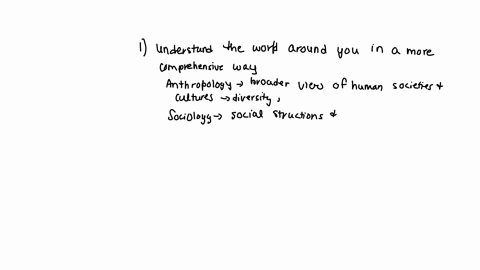 1) Understand the world around you in a more
comprehensive way
Anthropology → broader view of human societies &
cultures → diversity,
Sociology → social structions &